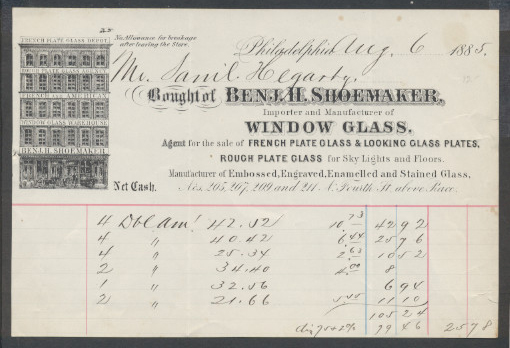 No Allowance for breakage
after leaving the Store.
FRENCH PLATE GLASS DEPOT
ROUGH PLATE GLASS AGENCY
FRENCH AND AMERICAN
WINDOW GLASS WAREHOUSE
BENJ. H. SHOEMAKER
Philadelphia Aug. 6 1885.
Mr. Saml. Hegarty.
Bought of BENJ. H. SHOEMAKER,
Importer and Manufacturer of
WINDOW GLASS,
Agent for the sale of FRENCH PLATE GLASS & LOOKING GLASS PLATES,
ROUGH PLATE GLASS for Sky Lights and Floors.
Manufacturer of Embossed, Engraved, Enamelled and Stained Glass,
Net Cash. Nos. 205, 207, 209 and 211 N. Fourth St. above Race.
4 Dbl Am! 42.52 10.73 42 92
4 " 40.42 6.44 25 76
4 " 25.34 2.63 10 52
2 " 34.40 4.00 8
1 " 32.56 6 94
2 " 21.66 5.55 11 10
105 24
dis 75+2% 79 46 25 78